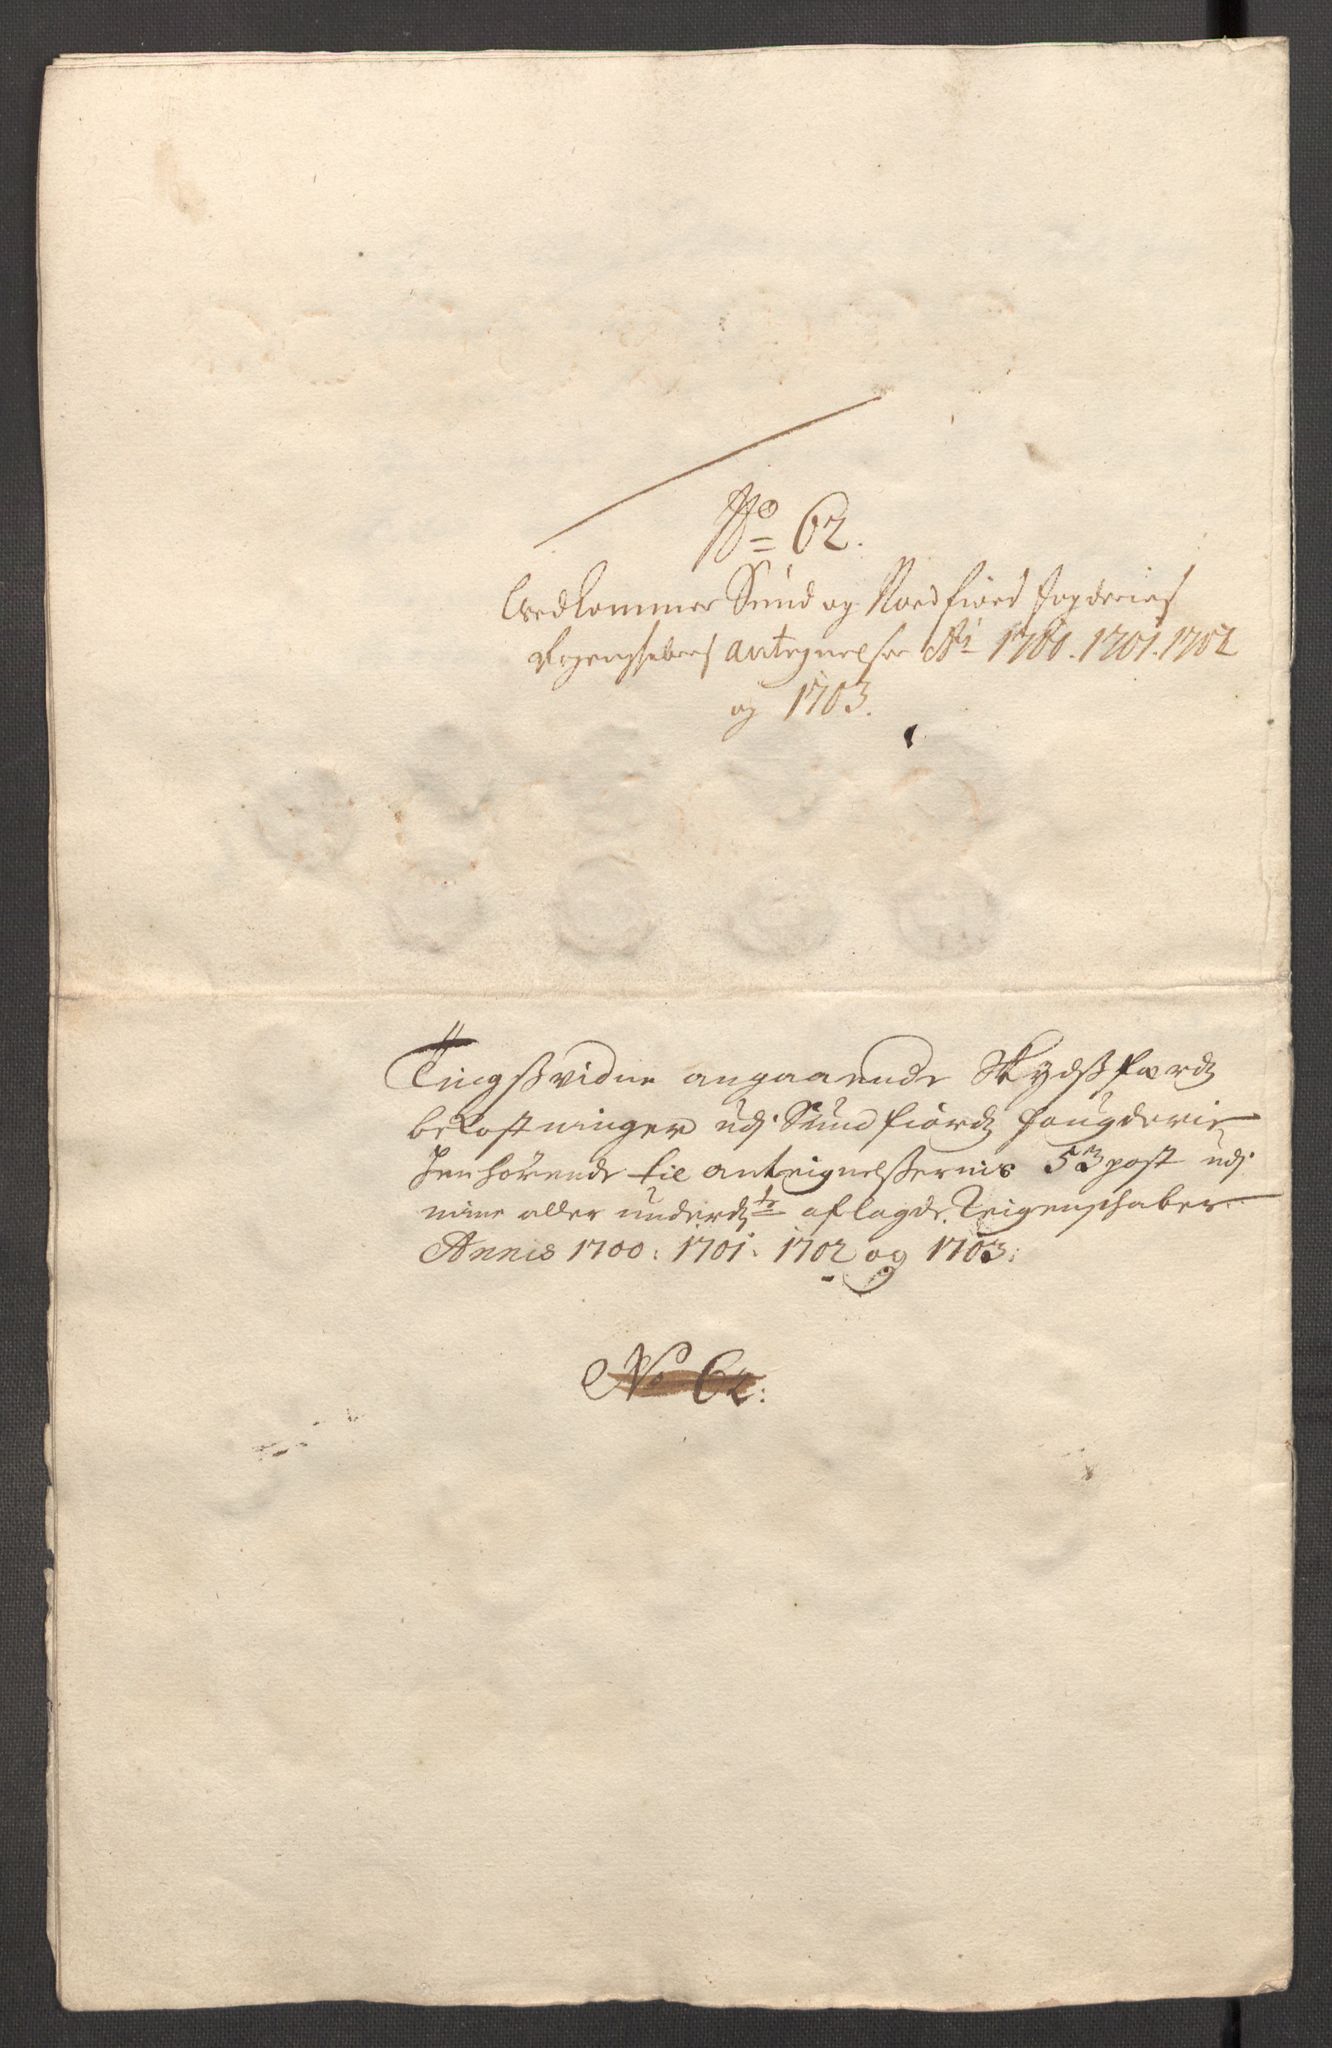 No 62.
Vedkommer Sund og Nordfiord fogderies
Regenschabers antegnelser A: 1700. 1701. 1702
og 1703.
Tingsvidne angaaende Skydsferdz
bekostninger udj Sundfiordz fougderie
henhörende til anteignelßernis 53 post udj
mine aller underd:te aflagde Reigenschaber
Annis 1700: 1701: 1702 og 1703:
No 62: